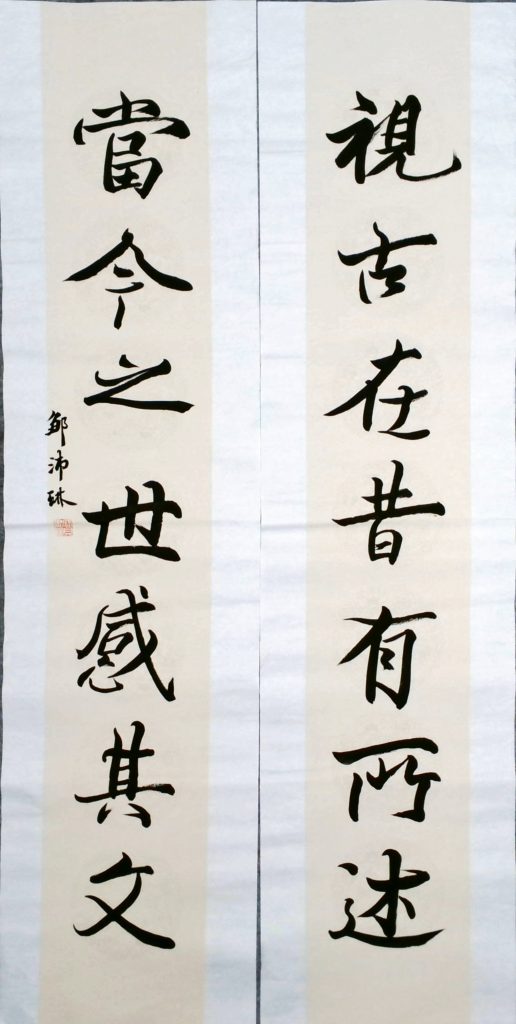 視古在昔有所述
當今之世感其文
鄒沛琳